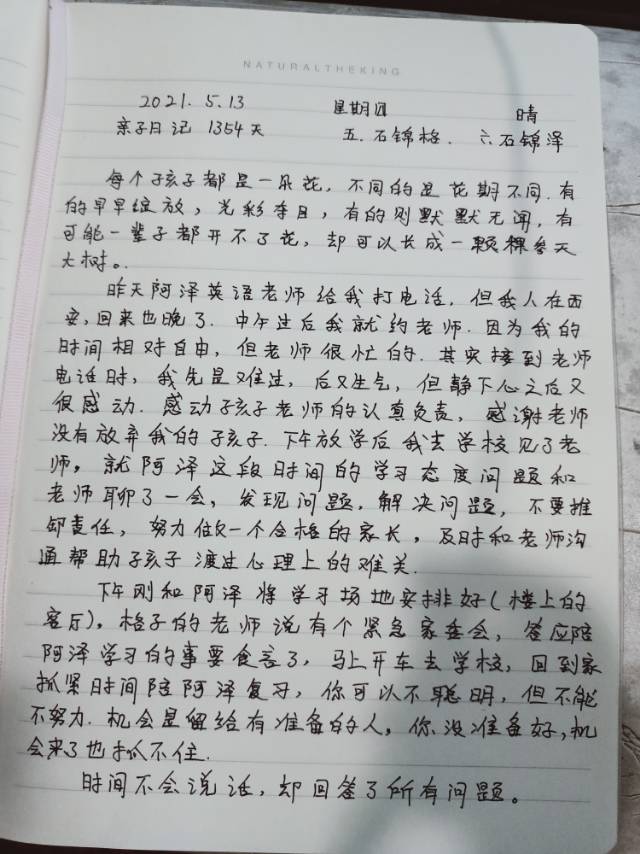 NATURALTHEKING
2021. 5.13 星期四 晴
亲子日记 1354天 五.石锦格. 六石锦泽
每个孩子都是一朵花，不同的是花期不同.有
的早早绽放，光彩夺目，有的则默默无闻，有
可能一辈子都开不了花，却可以长成一颗棵参天
大树。.
昨天阿泽英语老师给我打电话，但我人在西
安，回来也晚了.中午过后我就约老师.因为我的
时间相对自由，但老师很忙的.其实接到老师
电话时，我先是难过，后又生气，但静下心之后又
很感动.感动孩子老师的认真负责，感谢老师
没有放弃我的孩子.下午放学后我去学校见了老
师，就阿泽这段时间的学习态度问题和
老师聊了一会，发现问题，解决问题，不要推
卸责任，努力做一个合格的家长，及时和老师沟
通帮助孩子渡过心理上的难关.
下午刚和阿泽将学习场地安排好(楼上的
客厅)，格子的老师说有个紧急家委会，答应陪
阿泽学习的事要食言了，马上开车去学校，回到家
抓紧时间陪阿泽复习，你可以不聪明，但不能
不努力.机会是留给有准备的人，你没准备好，机
会来了也抓不住.
时间不会说话，却回答了所有问题。